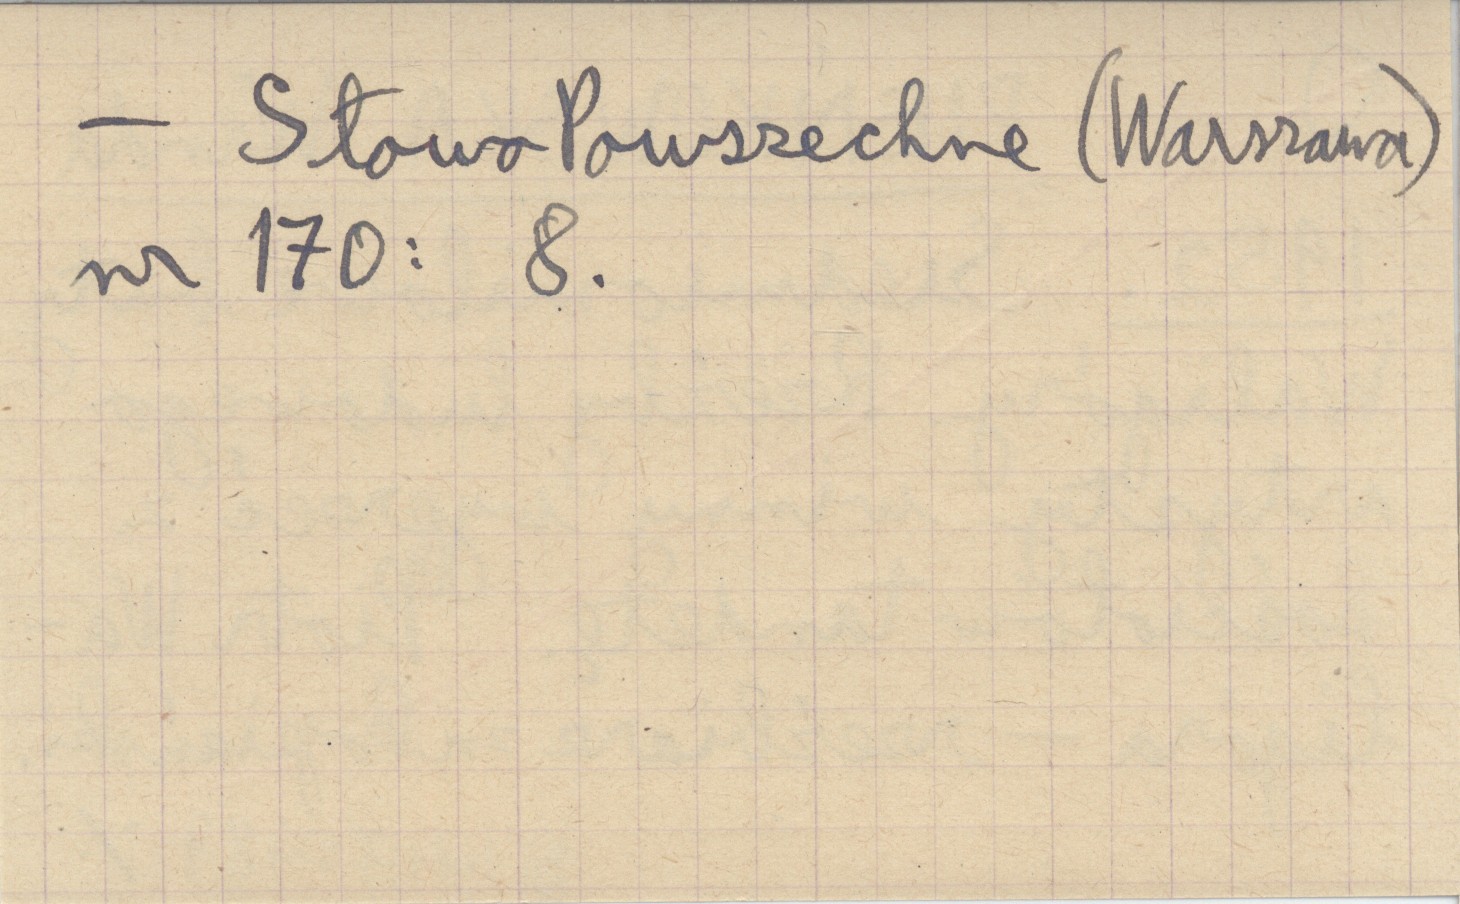 — Słowo Powszechne (Warszawa)
nr 170: 8.